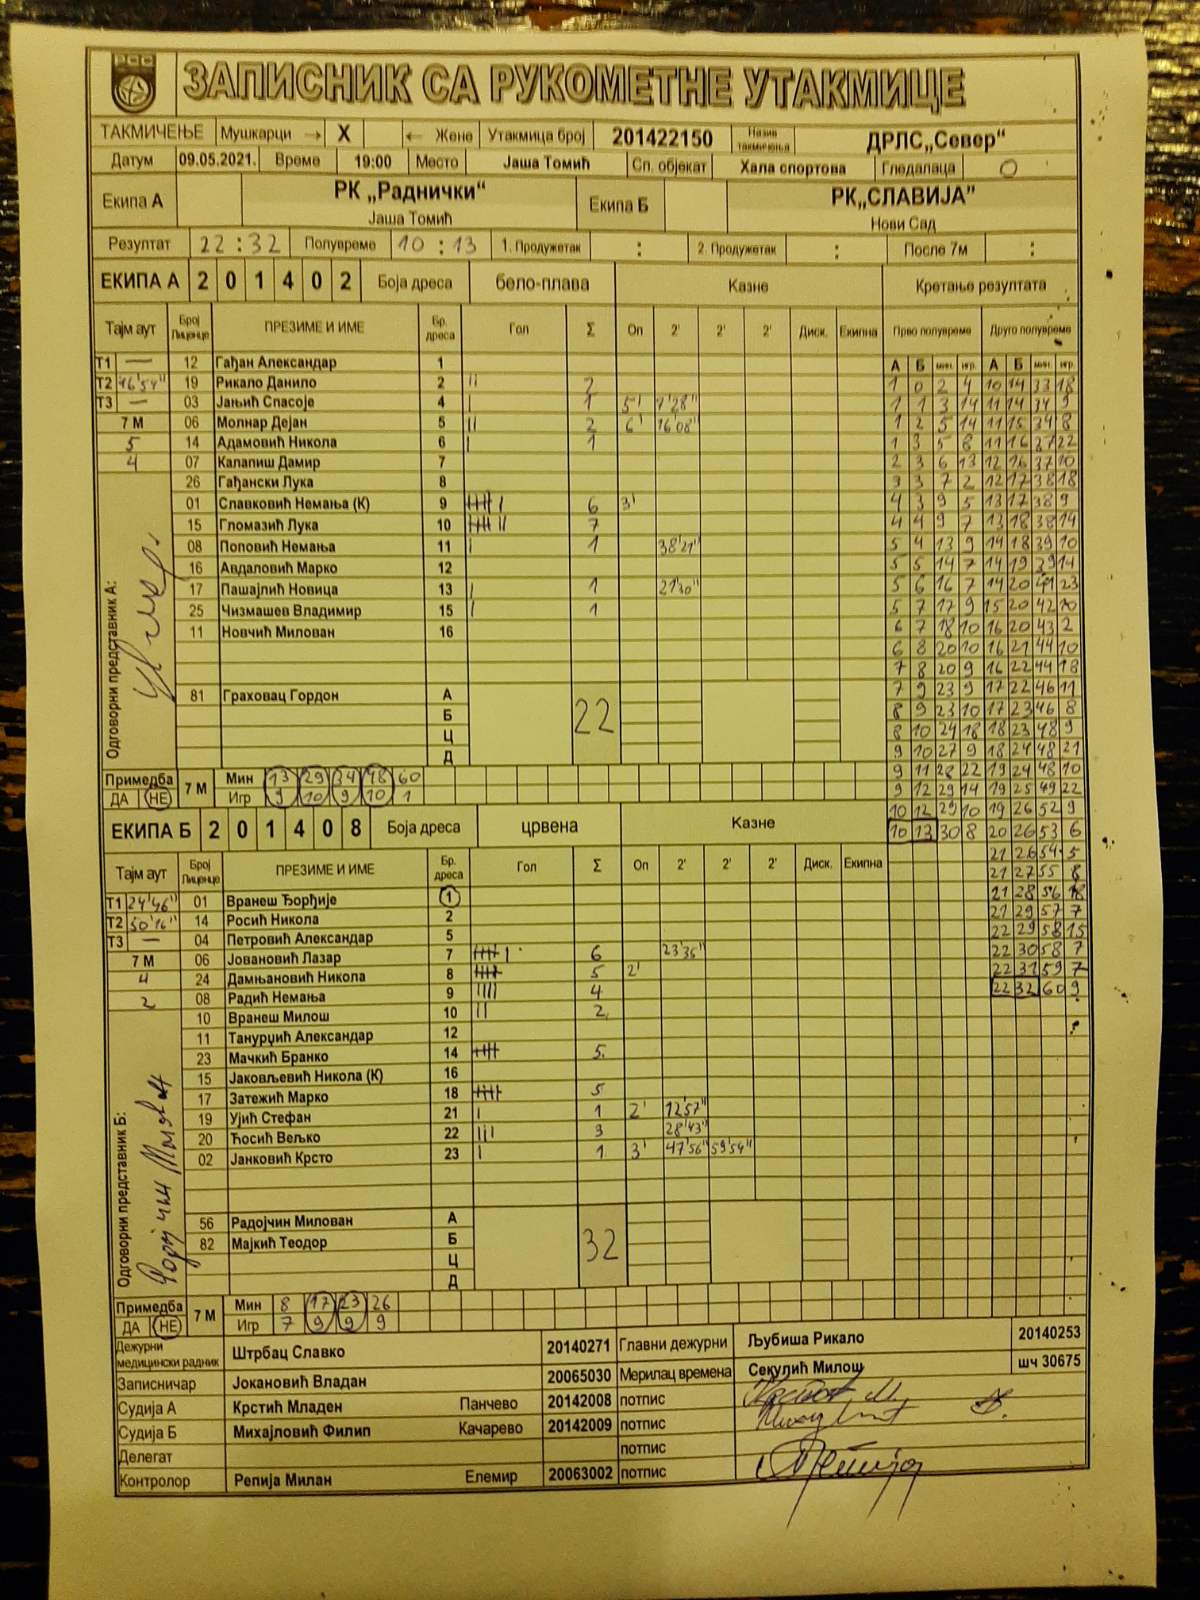 РСС
ЗАПИСНИК СА РУКОМЕТНЕ УТАКМИЦЕ
ТАКМИЧЕЊЕ Мушкарци → X ← Жене Утакмица број 201422150 Назив такмичења ДРЛС„Север“
Датум 09.05.2021. Време 19:00 Место Јаша Томић Сп. објекат Хала спортова Гледалаца 0
Екипа А РК „Раднички“ Јаша Томић Екипа Б РК„СЛАВИЈА” Нови Сад
Резултат 22 : 32 Полувреме 10 : 13 1. Продужетак : 2. Продужетак : После 7м :
ЕКИПА А 2 0 1 4 0 2 Боја дреса бело-плава Казне Кретање резултата
Тајм аут Број Лиценце ПРЕЗИМЕ И ИМЕ Бр. дреса Гол Σ Оп 2' 2' 2' Диск. Екипна Прво полувреме Друго полувреме
А Б мин. игр. А Б мин. игр.
Т1 — 12 Гађан Александар 1
Т2 46'54" 19 Рикало Данило 2 || 2 1 0 2 4 10 14 33 18
Т3 — 03 Јањић Спасоје 4 | 1 5' 7'28" 1 1 3 14 11 14 34 9
7 М 06 Молнар Дејан 5 || 2 6' 16'08" 1 2 5 14 11 15 34 8
5 14 Адамовић Никола 6 | 1 1 3 5 8 11 16 37 22
4 07 Калапиш Дамир 7 2 3 6 13 12 16 37 10
26 Гађански Лука 8 3 3 7 2 12 17 38 18
01 Славковић Немања (К) 9 |||| | 6 3' 4 3 9 5 13 17 38 9
15 Гломазић Лука 10 |||| || 7 4 4 9 7 13 18 38 14
08 Поповић Немања 11 | 1 38'21" 5 4 13 9 14 18 39 10
16 Авдаловић Марко 12 5 5 14 7 14 19 39 14
17 Пашајлић Новица 13 | 1 21'30" 5 6 16 7 14 20 41 23
25 Чизмашев Владимир 15 | 1 5 7 17 9 15 20 42 10
11 Новчић Милован 16 6 7 18 10 16 20 43 2
6 8 20 10 16 21 44 10
7 8 20 9 16 22 44 18
81 Граховац Гордон А 22 7 9 23 9 17 22 46 11
Б 8 9 23 10 17 23 46 8
Ц 8 10 24 18 18 23 48 9
Д 9 10 27 9 18 24 48 21
Одговорни представник А:
Примедба 7 М Мин 13 29 34 48 60 9 11 28 22 19 24 48 10
ДА НЕ Игр 9 10 9 10 1 9 12 29 14 19 25 49 22
10 12 29 10 19 26 52 9
ЕКИПА Б 2 0 1 4 0 8 Боја дреса црвена Казне 10 13 30 8 20 26 53 6
21 26 54 5
Тајм аут Број Лиценце ПРЕЗИМЕ И ИМЕ Бр. дреса Гол Σ Оп 2' 2' 2' Диск. Екипна 21 27 55 8
Т1 24'46" 01 Вранеш Ђорђије 1 21 28 56 18
Т2 50'16" 14 Росић Никола 2 21 29 57 7
Т3 — 04 Петровић Александар 5 22 29 58 15
7 М 06 Јовановић Лазар 7 |||| | 6 23'35" 22 30 58 7
4 24 Дамњановић Никола 8 |||| 5 2' 22 31 59 7
2 08 Радић Немања 9 |||| 4 22 32 60 9
10 Вранеш Милош 10 || 2
11 Танурџић Александар 12
23 Мачкић Бранко 14 |||| 5
15 Јаковљевић Никола (К) 16
17 Затежић Марко 18 |||| 5
19 Ујић Стефан 21 | 1 2' 12'57"
20 Ћосић Вељко 22 ||| 3 28'43"
02 Јанковић Крсто 23 | 1 3' 47'56" 59'54"
Одговорни представник Б:
56 Радојчин Милован А 32
82 Мајкић Теодор Б
Ц
Д
Примедба 7 М Мин 8 17 23 26
ДА НЕ Игр 7 9 9 9
Дежурни медицински радник Штрбац Славко 20140271 Главни дежурни Љубиша Рикало 20140253
Записничар Јокановић Владан 20065030 Мерилац времена Секулић Милош шч 30675
Судија А Крстић Младен Панчево 20142008 потпис
Судија Б Михајловић Филип Качарево 20142009 потпис
Делегат потпис
Контролор Репија Милан Елемир 20063002 потпис